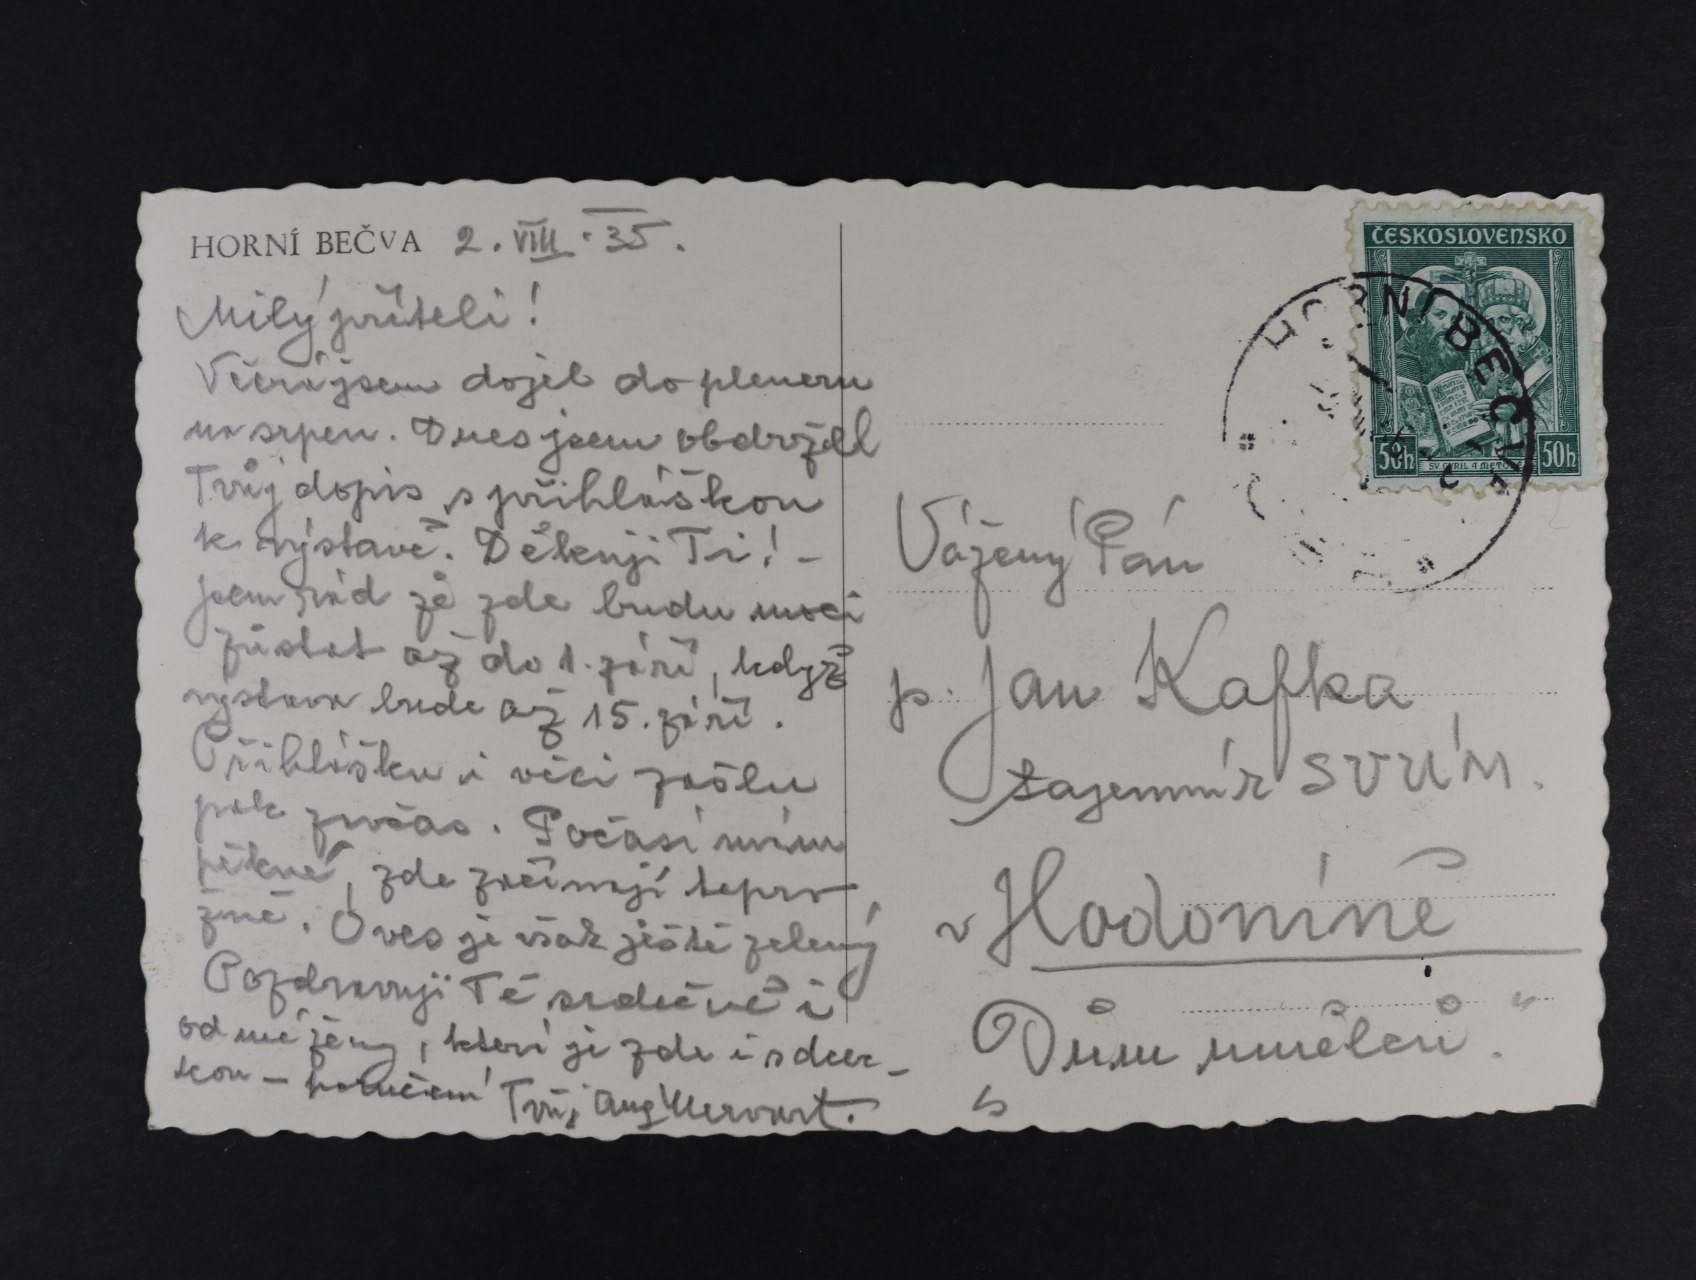 HORNÍ BEČVA 2. VIII. 35.
Milý příteli!
Včera jsem dojel do pleneru
na srpen. Dnes jsem obdržel
Tvůj dopis s přihláškou
k výstavě. Děkuji Ti! –
jsem rád že zde budu moci
zůstat až do 1. září, když
výstava bude až 15. září.
Přihlášku i věci zašlu
pak včas. Počasí mám
pěkné, zde začínají teprv
žně. Oves je však ještě zelený
Pozdravuji Tě srdečně i
od mé ženy, která je zde i s dcer-
kou – poručení Tvůj Aug Mervart.
ČESKOSLOVENSKO
50h SV. CYRIL A METOD 50h
HORNÍ BEČVA
Vážený Pán
p. Jan Kafka
tajemník SVUM.
v Hodoníně
Dům umělců".